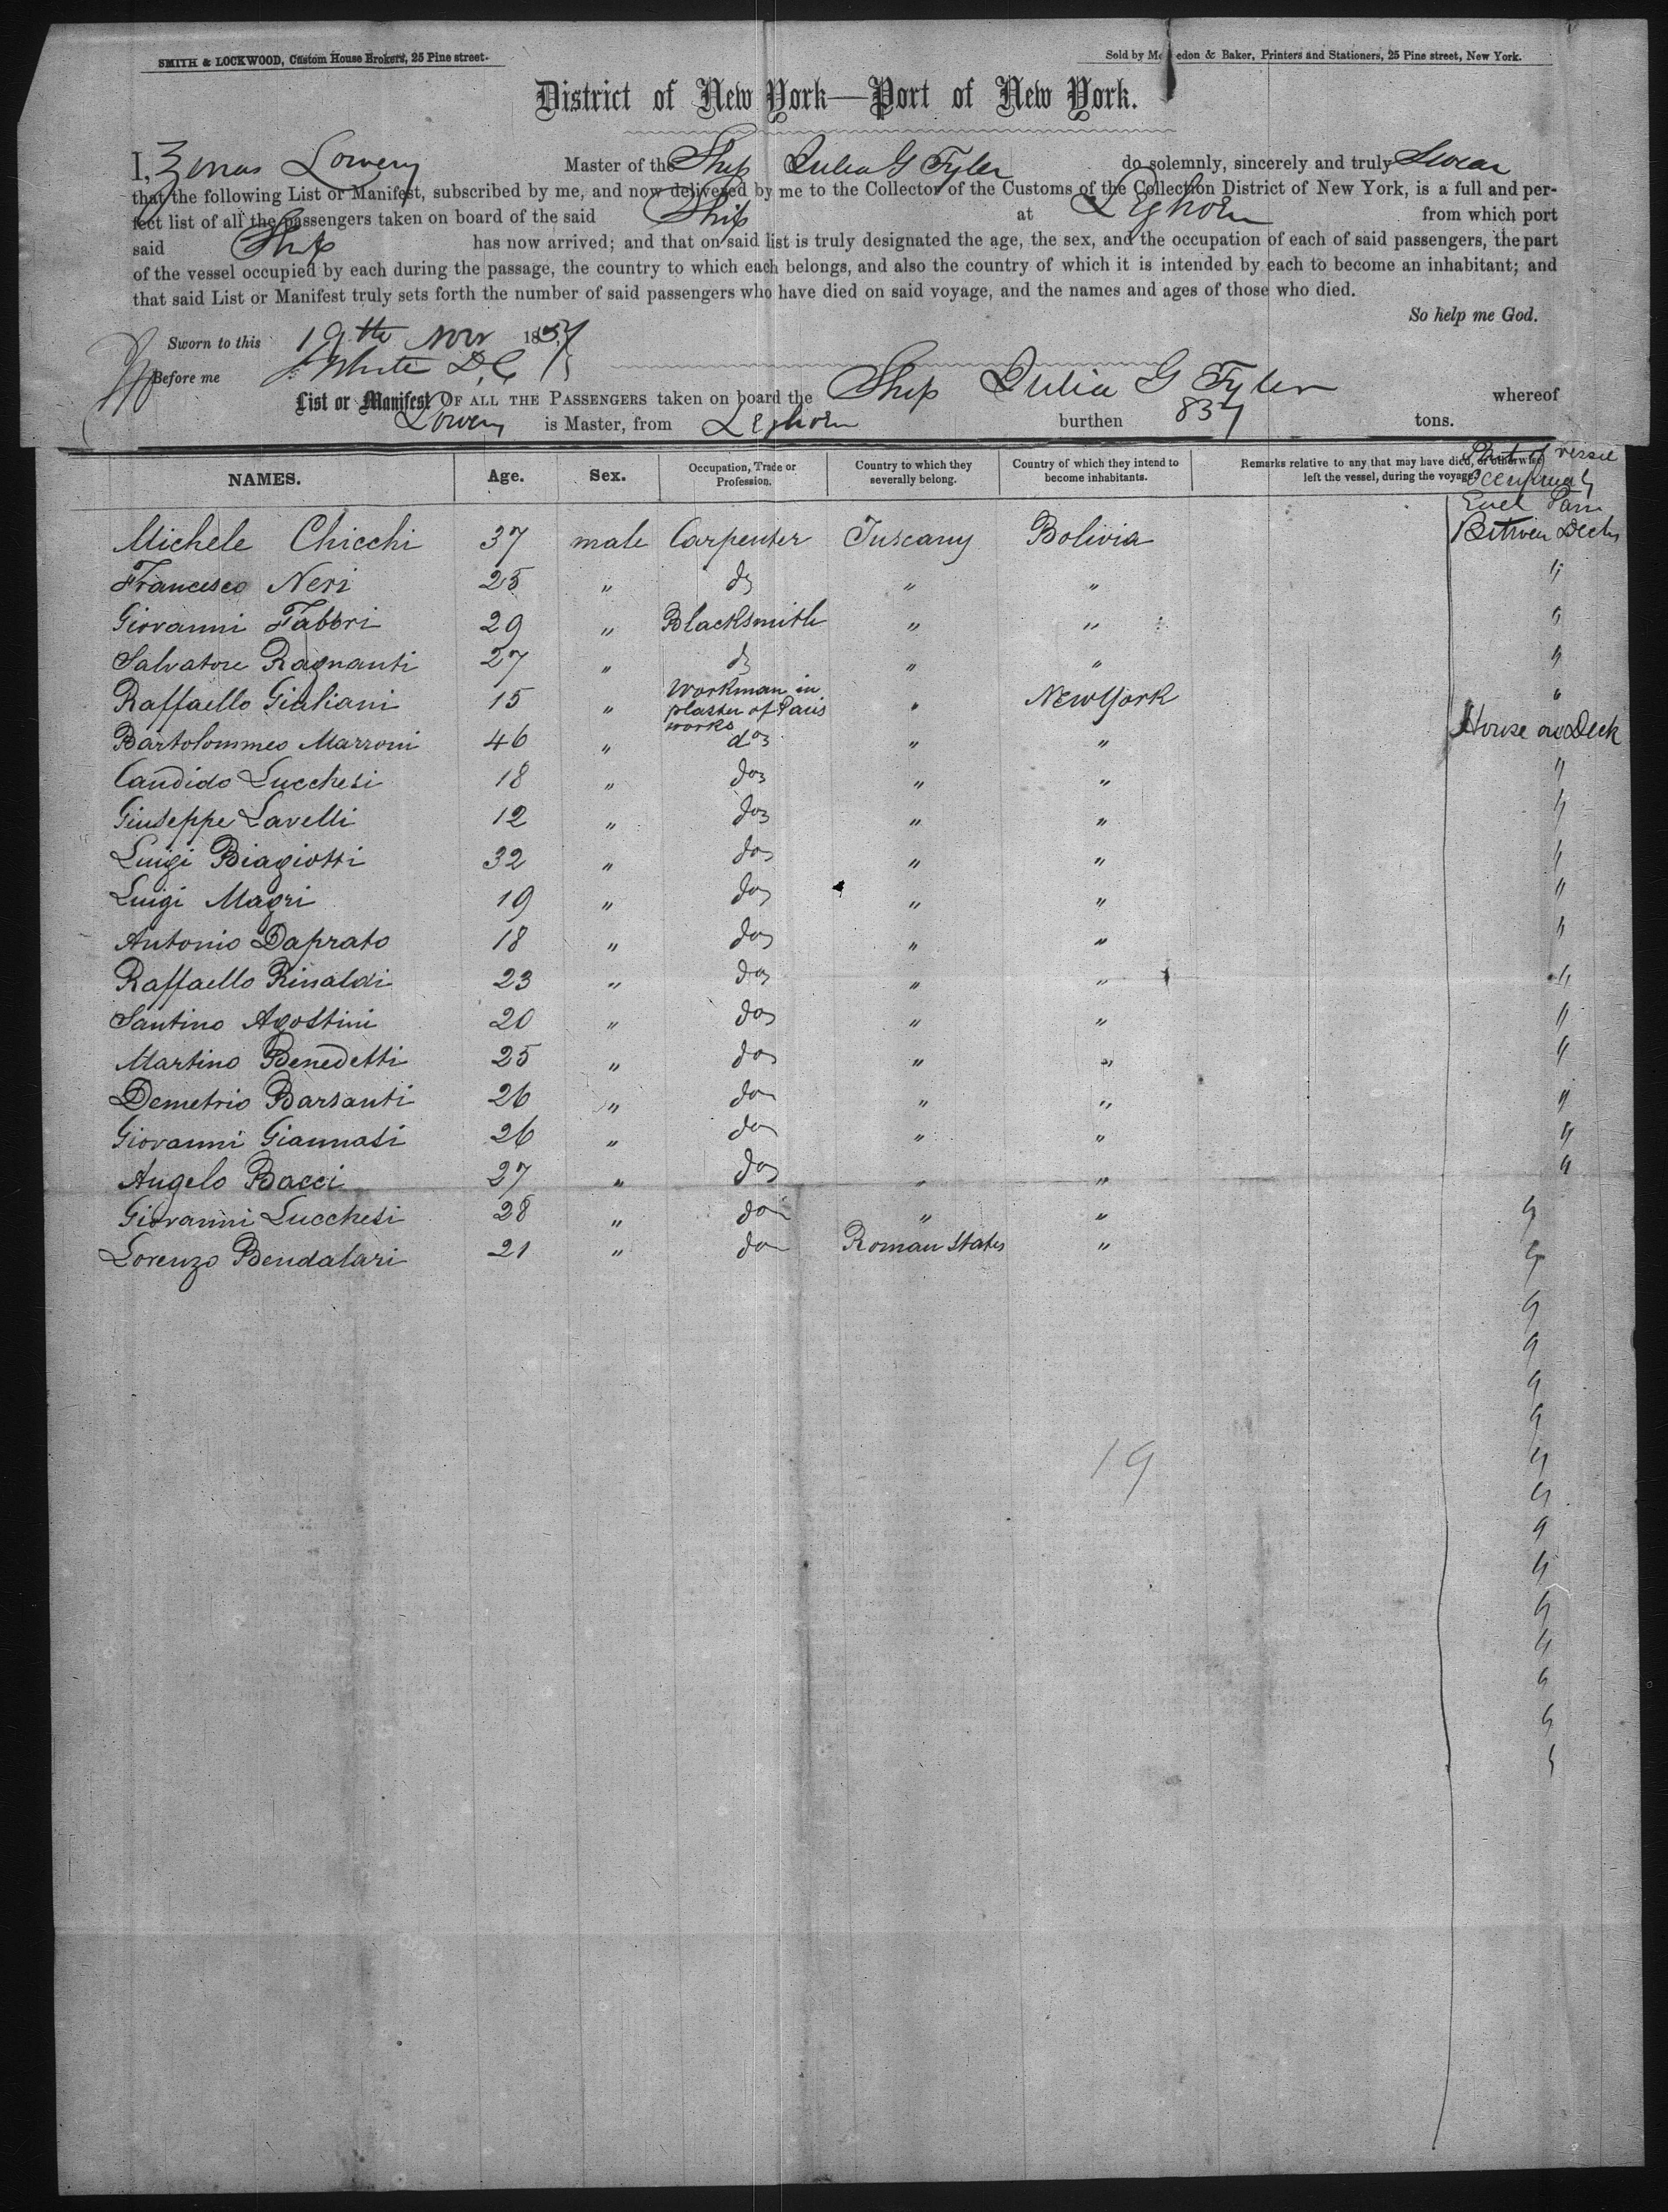 SMITH & LOCKWOOD, Custom House Brokers, 25 Pine street.
Sold by Mc edon & Baker, Printers and Stationers, 25 Pine street, New York.
District of New York—Port of New York.
I, Zenas Lowery Master of the Ship Julia G Tyler do solemnly, sincerely and truly Swear
that the following List or Manifest, subscribed by me, and now delivered by me to the Collector of the Customs of the Collection District of New York, is a full and per-
fect list of all the passengers taken on board of the said Ship at Leghorn from which port
said Ship has now arrived; and that on said list is truly designated the age, the sex, and the occupation of each of said passengers, the part
of the vessel occupied by each during the passage, the country to which each belongs, and also the country of which it is intended by each to become an inhabitant; and
that said List or Manifest truly sets forth the number of said passengers who have died on said voyage, and the names and ages of those who died.
So help me God.
Sworn to this 19th Nov 1857
Before me White D.C.
List or Manifest OF ALL THE PASSENGERS taken on board the Ship Julia G Tyler whereof
Lowery is Master, from Leghorn burthen 837 tons.
NAMES. Age. Sex. Occupation, Trade or Profession. Country to which they severally belong. Country of which they intend to become inhabitants. Remarks relative to any that may have died, or otherwise left the vessel, during the voyage. Part of vessel
Michele Chicchi 37 male Carpenter Tuscany Bolivia Between Decks
Francesco Neri 25 " do " " "
Giovanni Fabbri 29 " Blacksmith " " "
Salvatore Ragnanti 27 " do " " "
Raffaello Giuliani 15 " Workman in plaster of Paris works " New York "
Bartolommeo Marroni 46 " do " " House on Deck
Candido Lucchesi 18 " do " " "
Giuseppe Lavelli 12 " do " " "
Luigi Biagiotti 32 " do " " "
Luigi Magri 19 " do " " "
Antonio Daprato 18 " do " " "
Raffaello Rinaldi 23 " do " " "
Santino Agostini 20 " do " " "
Martino Benedetti 25 " do " " "
Demetrio Barsanti 26 " do " " "
Giovanni Giannasi 26 " do " " "
Angelo Bacci 27 " do " " "
Giovanni Lucchesi 28 " do " " "
Lorenzo Bendalari 21 " do Roman States " "
19